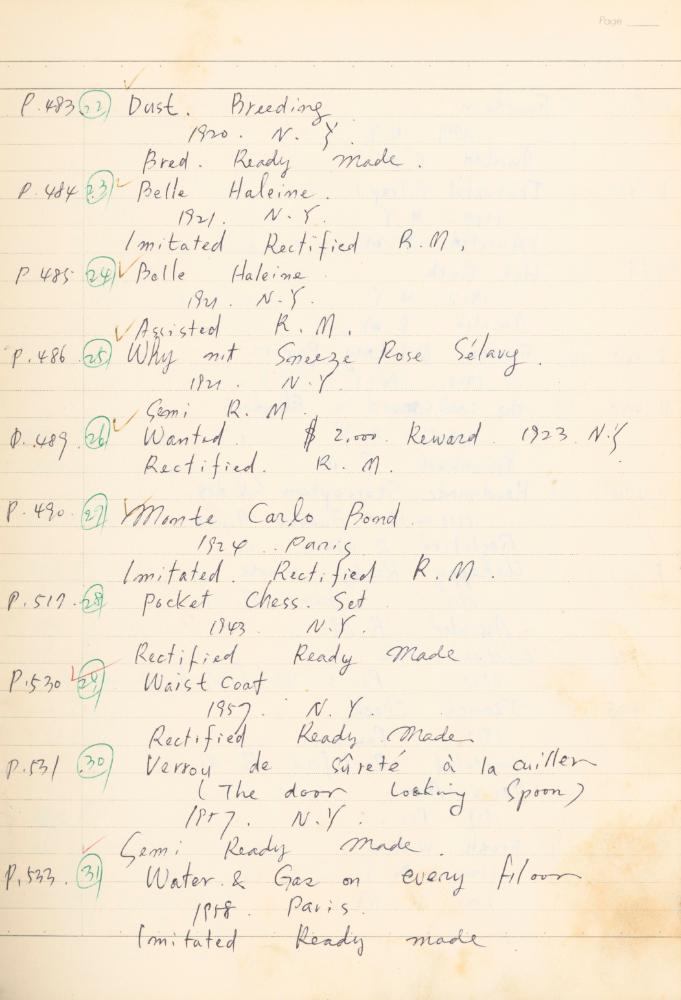 Page
P.483 22 Dust. Breeding
1920. N.Y.
Bred. Ready made.
P.484 23 Belle Haleine.
1921. N.Y.
Imitated Rectified R.M.
P 485 24 Belle Haleine.
1921. N.Y.
Assisted R.M.
P.486 25 Why not Sneeze Rose Sélavy.
1921. N.Y.
Semi R.M.
P.489. 26 Wanted. $ 2,000 Reward. 1923. N.Y
Rectified. R.M.
P.490. 27 Monte Carlo Bond.
1924. Paris.
Imitated. Rectified R.M.
P.517. 28 Pocket Chess. Set
1943. N.Y.
Rectified Ready Made
P.530 29 Waist Coat
1957. N.Y.
Rectified Ready Made.
P.531 30 Verrou de sûreté à la cuiller
(The door Looking Spoon)
1957. N.Y.
Semi Ready made.
P.533. 31 Water & Gas on every filoor
1958. Paris.
Imitated Ready made